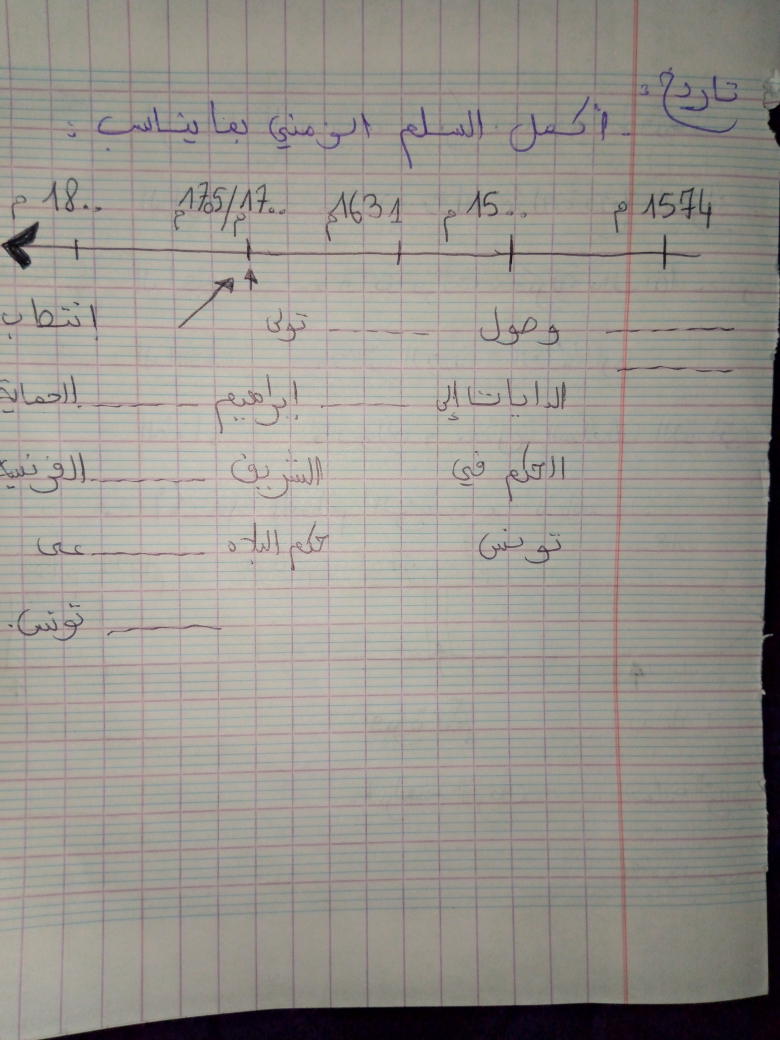 تاريخ :
أكمل السلم الزمني بما يناسب :
1574 م 15.. م 1631م 17../1705م م 18.. م
---------- وصول ---------- تولى انتصاب
---------- الدايات إلى ---------- إبراهيم ---------- الحماية
الحكم في الشريف ---------- الفرنسية
تونس حكم البلاد ---------- على
---------- تونس.